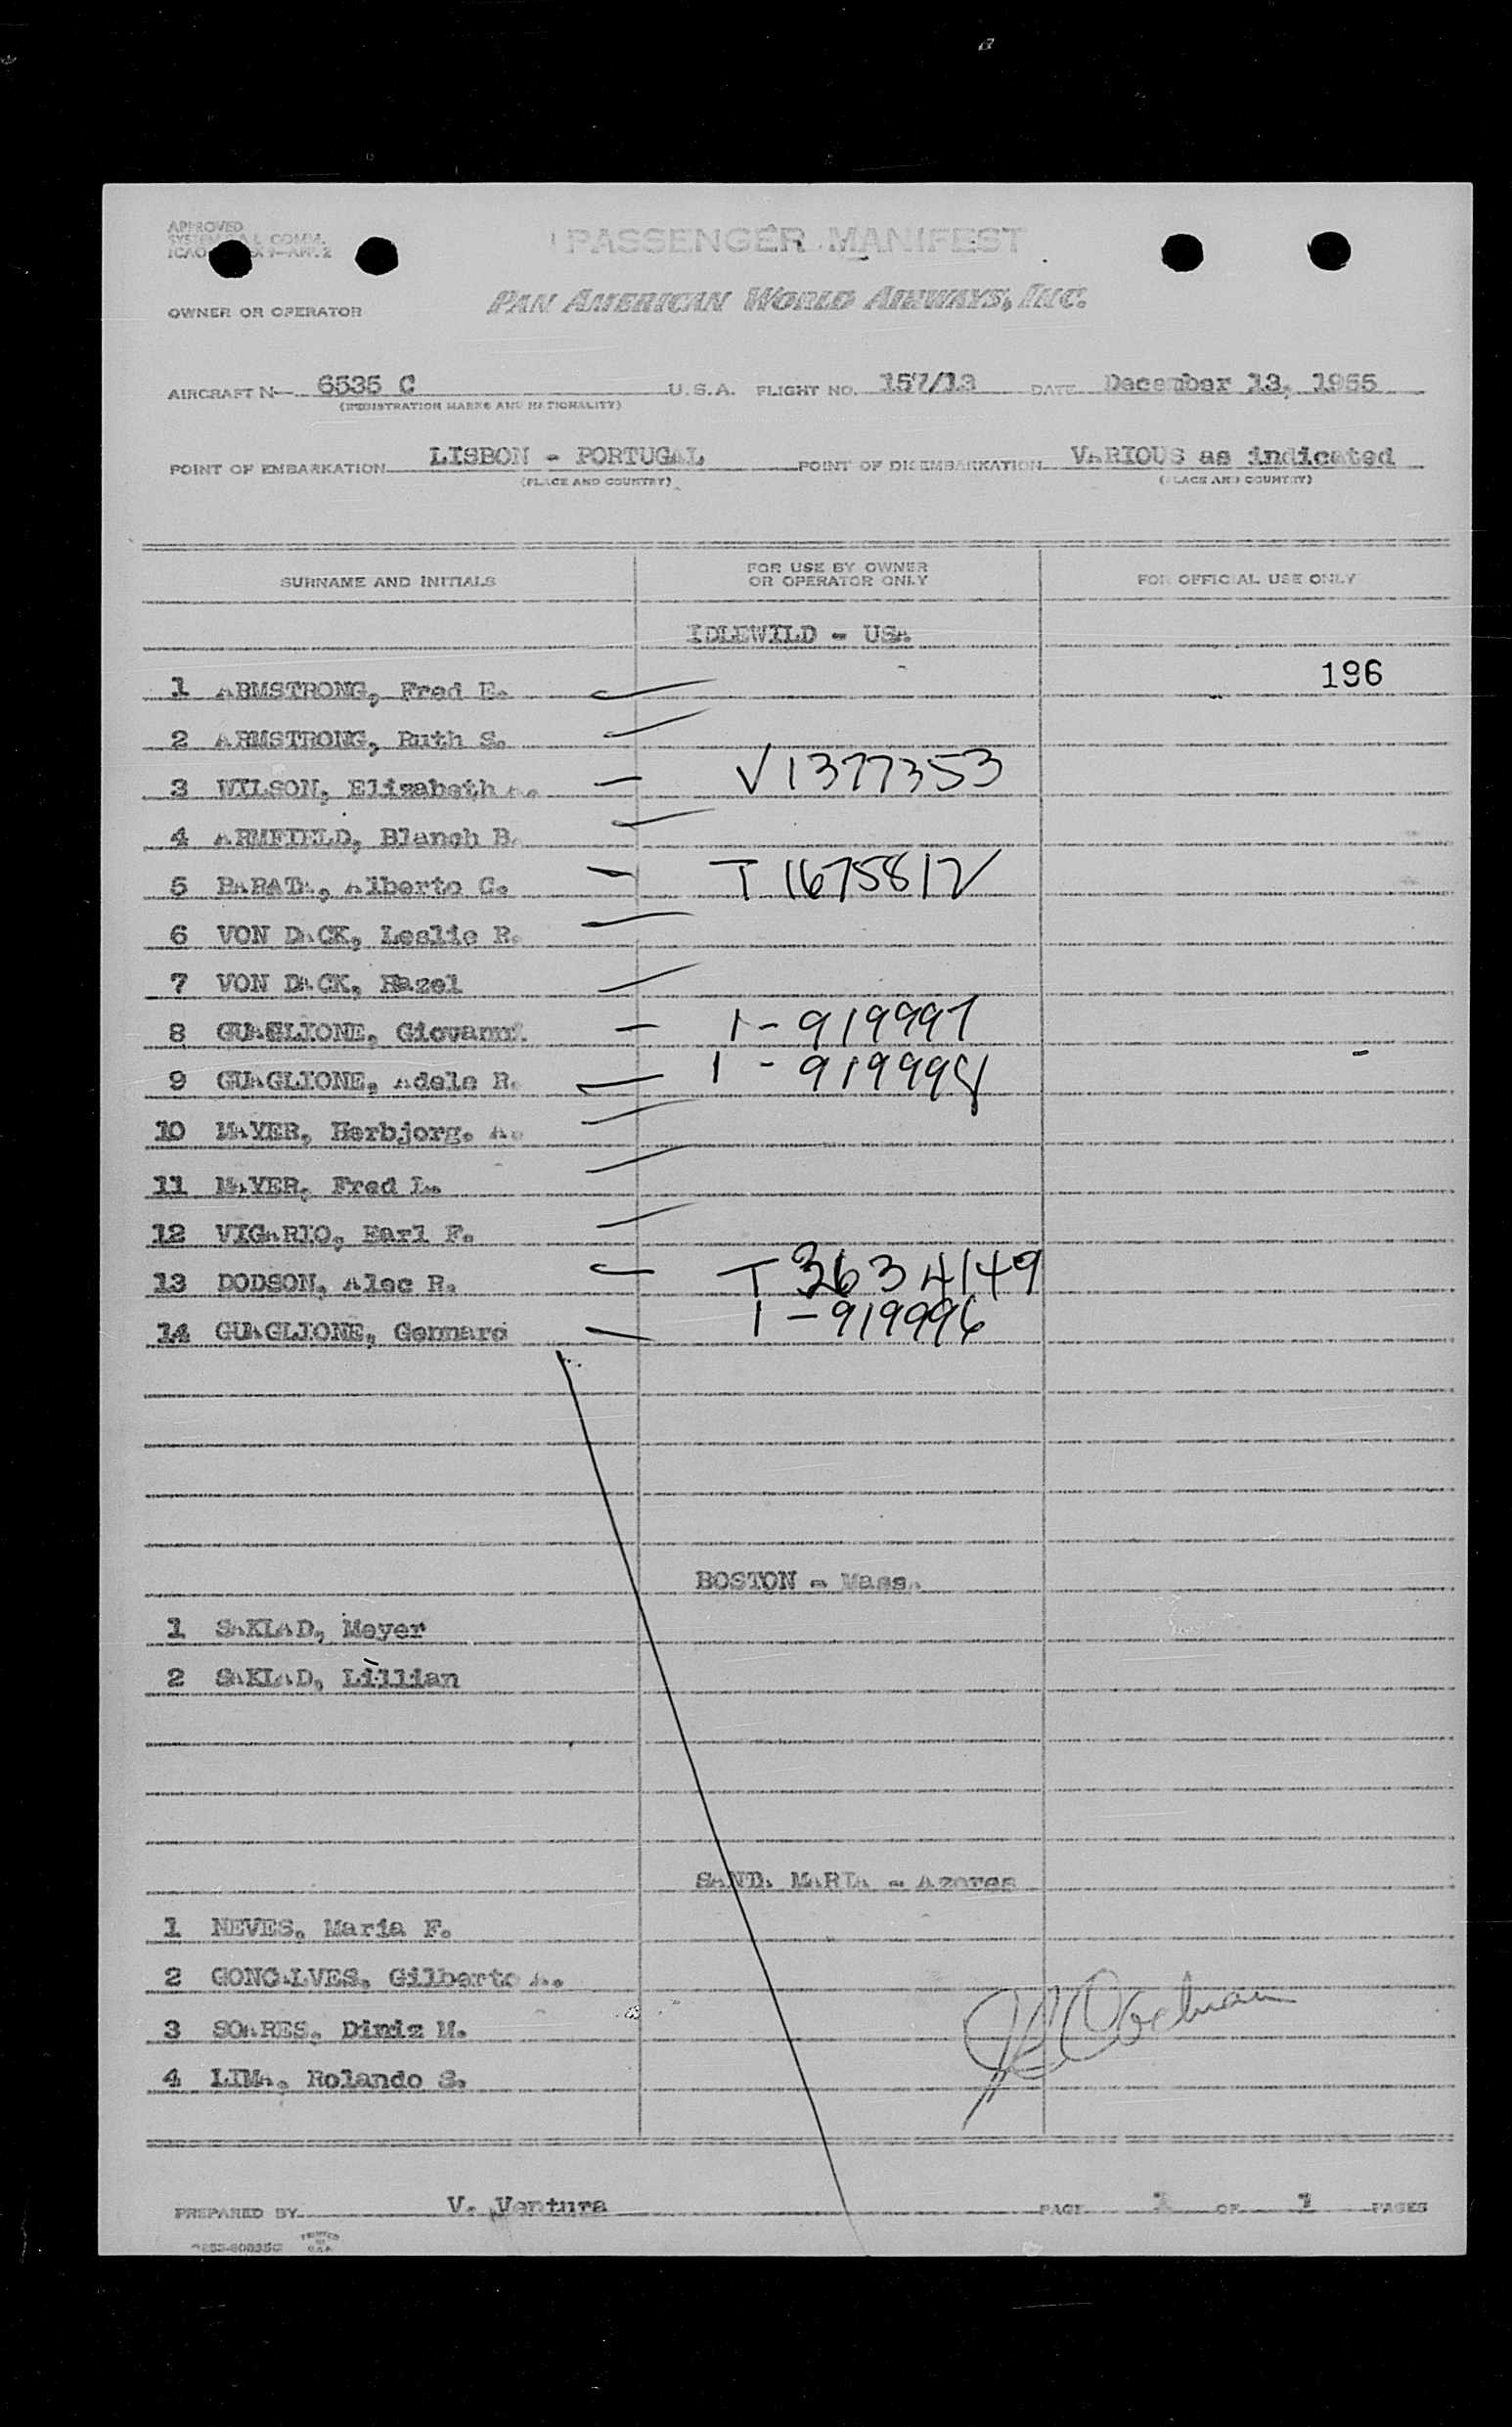 APPROVED
PASSENGER MANIFEST
OWNER OR OPERATOR PAN AMERICAN WORLD AIRWAYS, INC.
AIRCRAFT N— 6535 C U.S.A. FLIGHT NO. 157/13 DATE December 13, 1955
(REGISTRATION MARKS AND NATIONALITY)
POINT OF EMBARKATION LISBON - PORTUGAL POINT OF DISEMBARKATION VARIOUS as indicated
(PLACE AND COUNTRY) (PLACE AND COUNTRY)
SURNAME AND INITIALS FOR USE BY OWNER OR OPERATOR ONLY FOR OFFICIAL USE ONLY
IDLEWILD - USA
1 ARMSTRONG, Fred E. 196
2 ARMSTRONG, Ruth S.
3 WILSON, Elizabeth A. V1377353
4 ARMFIELD, Blanch B.
5 BARATA, Alberto C. T 1675812
6 VON DACK, Leslie R.
7 VON DACK, Hazel
8 GUAGLIONE, Giovanni 1-919997
9 GUAGLIONE, Adele R. 1-919998
10 MAYER, Herbjorg. A.
11 MAYER, Fred L.
12 VIGARIO, Earl F.
13 DODSON, Alec R. T 3634149
14 GUAGLIONE, Gennaro 1-919996
BOSTON - Mass.
1 SAKLAD, Meyer
2 SAKLAD, Lillian
SANTA MARIA - Azores
1 NEVES, Maria F.
2 GONCALVES, Gilberto A.
3 SOARES, Diniz M.
4 LIMA, Rolando S.
PREPARED BY V. Ventura PAGE 1 OF 1 PAGES
PRINTED IN U.S.A.